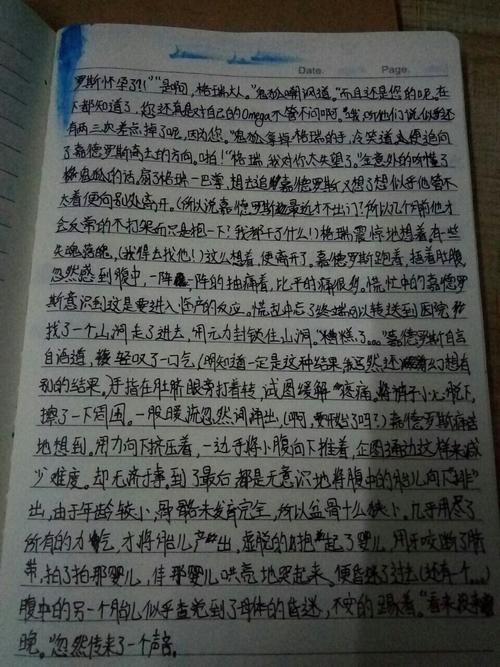 Date. Page.
罗斯怀孕了?!""是啊,格瑞大人。"鬼狐嘲讽道。"而且还是您的吧。在
下都知道了,您还真是对自己的Omega不管不问啊。"我听他们说似乎还
有两三次差点掉了呢,因为您。"鬼狐拿掉格瑞的手,冷笑道便追向
了嘉德罗斯离去的方向。啪!"格瑞,我对你太失望了。"金意外的听懂了
鬼狐的话。扇了格瑞一巴掌,想去追嘉德罗斯又想了想似乎他管不
太着便向别处离开。(所以说嘉德罗斯最近才不出门?所以几个月前他才
会反常的不打架而只是抱一下?我都干了什么!)格瑞震惊地想着。有些
失魂落魄,(我得去找他!)这么想着,便离开了。嘉德罗斯跑着,捂着肚腹,
忽然感到腹中,一阵一阵的抽痛着,比平的痛很多。慌忙中的嘉德罗
斯意识到这是要进入临产的反应。慌乱中忘了终端可以转送到医院
找了一个山洞走了进去,用元力封锁住山洞。"糟糕了…"嘉德罗斯自言
自语道,轻叹了一口气(明知道一定是这种结果,居然还幻想着
别的结果。)手指在肚脐眼旁打着转,试图缓解疼痛。将裤子小心脱下,
擦了一下周围。一股暖流忽然涌出,(啊,要开始了吗?)嘉德罗斯痛苦
地想到。用力向下挤压着,一边手将小腹向下推着,企图通过这样来减
少难度。却无济于事,到了最后都是无意识地将腹中的胎儿向下"排"
出,由于年龄较小,骨骼未发育完全,所以盆骨十么狭小。几乎用尽了
所有的力气,才将胎儿产出,虚脱的抱起了婴儿,用牙咬断了脐
带,拍了拍那婴儿,使那婴儿哄亮地哭起来。便昏迷了过去(还有个…)
腹中的另一个胎儿似乎查觉到了母体的昏迷,不安的踢着。"看来我来
晚。"忽然传来了一个声音。